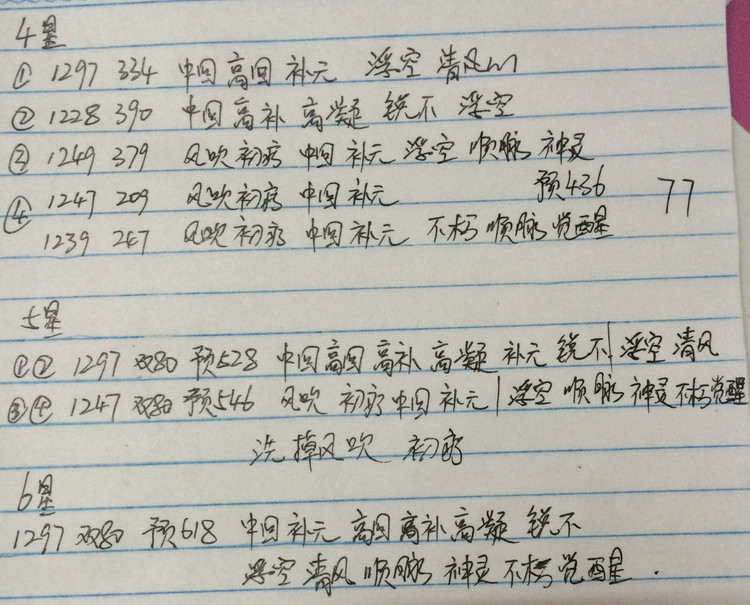 4星
① 1297 334 中回 高回 补元 浮空 清风
② 1228 390 中回 高补 高凝 锐不 浮空
③ 1249 379 风吹 初疗 中回 补元 浮空 顺脉 神灵
④ 1247 209 风吹 初疗 中回 补元 预436 77
1239 247 风吹 初疗 中回 补元 不朽 顺脉 觉醒
5星
①② 1297 双80 预528 中回 高回 高补 高凝 补元 锐不 | 浮空 清风
③④ 1247 双80 预546 风吹 初疗 中回 补元 | 浮空 顺脉 神灵 不朽 觉醒
洗掉风吹 初疗
6星
1297 双80 预618 中回 补元 高回 高补 高凝 锐不
浮空 清风 顺脉 神灵 不朽 觉醒 .